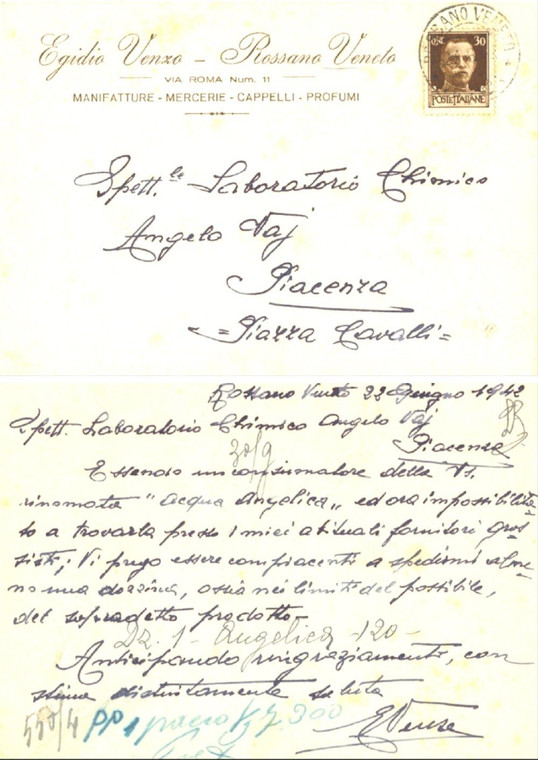 Egidio Venzo - Rossano Veneto
VIA ROMA Num. 11
MANIFATTURE - MERCERIE - CAPPELLI - PROFUMI
ROSSANO VENETO
CENT. 30
POSTE ITALIANE
Spett.le Laboratorio Chimico
Angelo Vaj
Piacenza
=Piazza Cavalli=
Rossano Veneto 22 Giugno 1942
Spett. Laboratorio Chimico Angelo Vaj
Piacenza
30/9
Essendo un consumatore della Vs.
rinomata "Acqua Angelica" ed ora impossibilita-
to a trovarla presso i miei abituali fornitori gros-
sisti; Vi prego essere compiacenti a spedirmi alme-
no una dozzina, ossia nei limiti del possibile,
del sopradetto prodotto-
Dz. 1 - Angelica - 120 -
Anticipando ringraziamenti, con
stima distintamente saluta
EVenzo
550/4 pp 1 pacco Kg 7.300